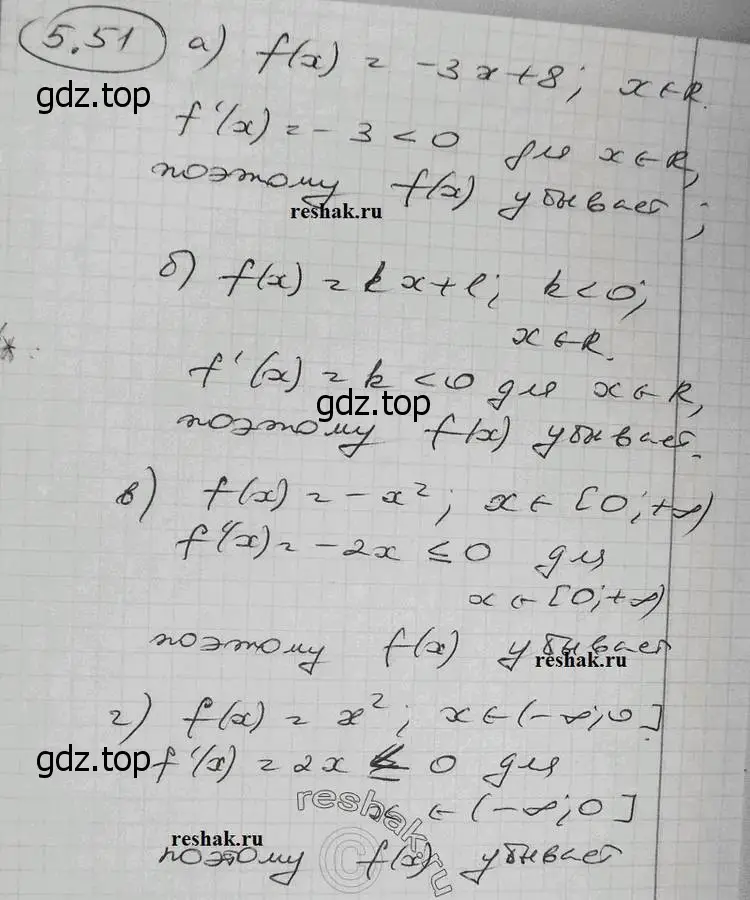 5.51 а) f(x) = -3x+8; x∈R.
gdz.top
f'(x) = -3 < 0 для x∈R,
поэтому f(x) убывает;
reshak.ru
б) f(x) = kx+l; k<0;
x∈R.
f'(x) = k < 0 для x∈R,
gdz.top
поэтому f(x) убывает.
в) f(x) = -x²; x∈[0;+∞)
f'(x) = -2x ≤ 0 для
x∈[0;+∞)
поэтому f(x) убывает
reshak.ru
г) f(x) = x²; x∈(-∞;0]
gdz.top f'(x) = 2x ≤ 0 для
x∈(-∞;0]
reshak.ru
reshak.ru
поэтому f(x) убывает